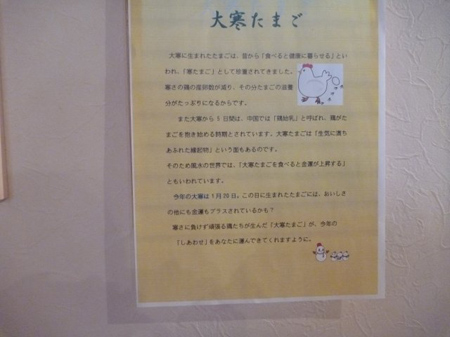 大寒たまご
大寒に生まれたたまごは、昔から「食べると健康に暮らせる」とい
われ、「寒たまご」として珍重されてきました。
寒さの鶏の産卵数が減り、その分たまごの滋養
分がたっぷりになるからです。
また大寒から5日間は、中国では「鶏始乳」と呼ばれ、鶏がた
まごを抱き始める時期とされています。大寒たまごは「生気に満ち
あふれた縁起物」という面もあるのです。
そのため風水の世界では、「大寒たまごを食べると金運が上昇する」
ともいわれています。
今年の大寒は1月20日。この日に生まれたたまごには、おいしさ
の他にも金運もプラスされているかも?
寒さに負けず頑張る鶏たちが生んだ「大寒たまご」が、今年の
「しあわせ」をあなたに運んできてくれますように。